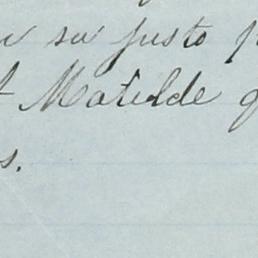 su justo
Matilde
s.